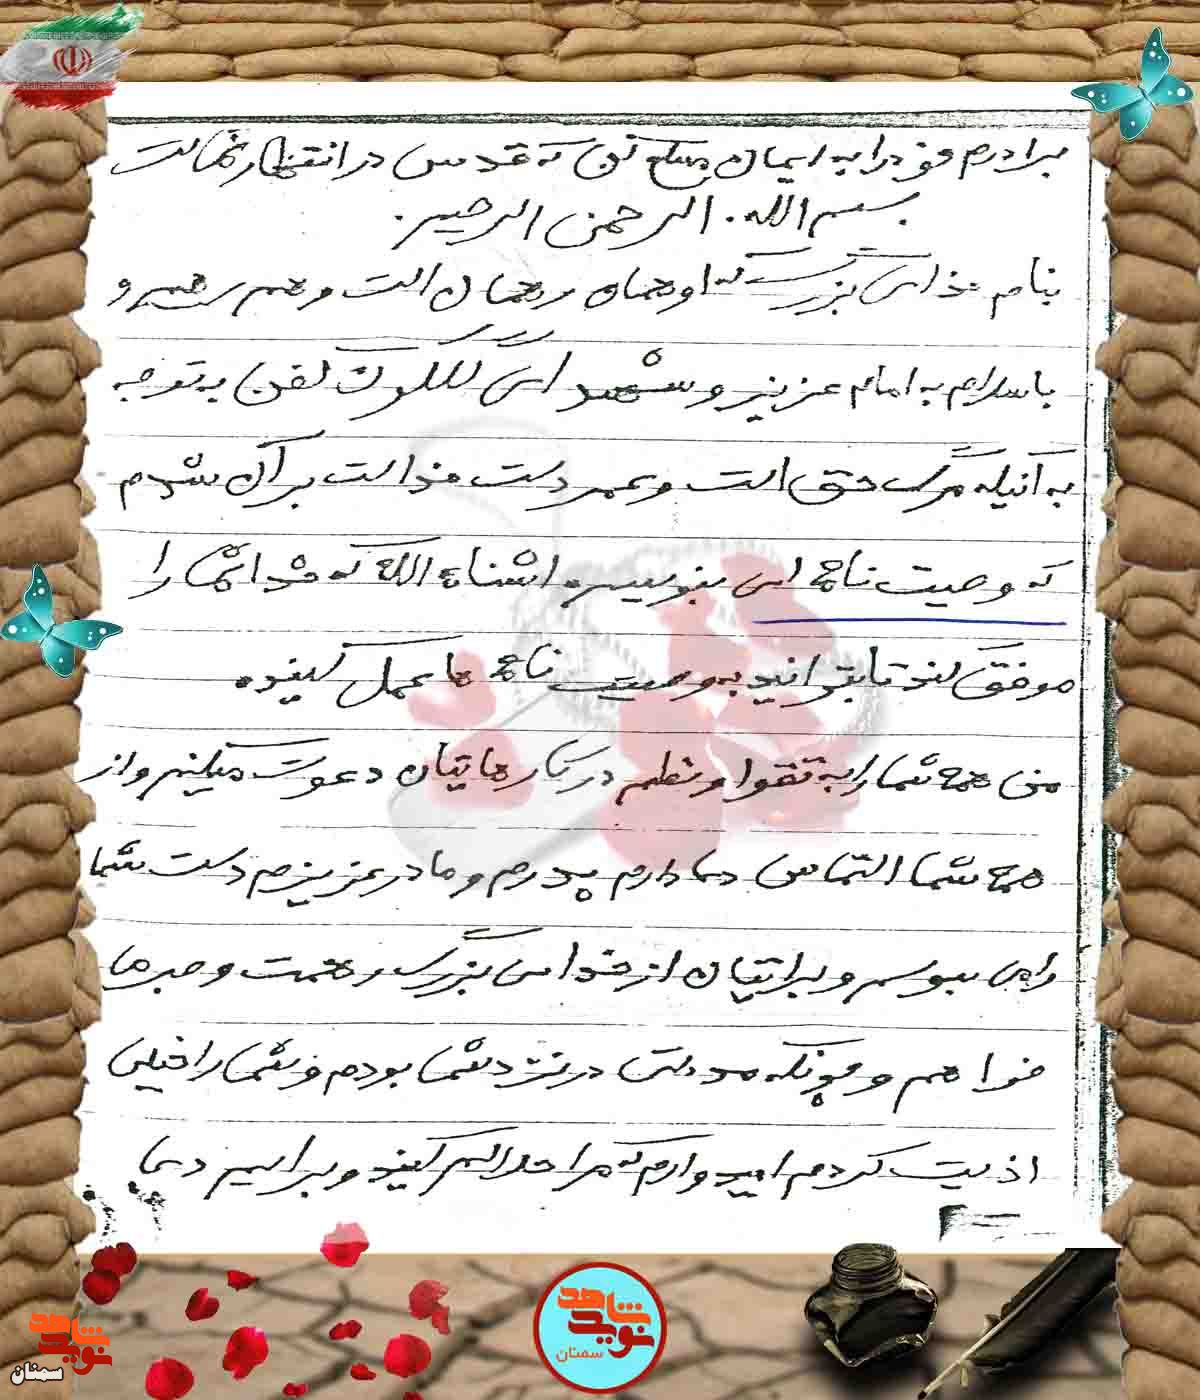 برادرم خود را به ایمان مسلح کن که قدس در انتظار شماست
بسم الله الرحمن الرحیم
بنام خدای بزرگ که او همان رحمان است و هم رحیم و
با سلام به امام عزیز و شهدای گلگون کفن به توجه
به آنیکه مرگ حق است و عمر دست خداست بر آن شدم
که وصیت نامه ای بنویسم انشاء الله که خدا شما را
موفق کند تا بتوانید به وصیت نامه ما عمل کنید
من همه شما را به تقوا و نظم در کارهایتان دعوت میکنم و از
همه شما التماس دعا دارم پدرم و مادر عزیزم دست شما
را می بوسم و برایتان از خدای بزرگ رحمت و صبر می
خواهم و چونکه مدتی در نزد شما بودم و شما را خیلی
اذیت کردم امیدوارم که مرا حلالم کنید و برایم دعا
نوید شاهد
سمنان
نوید شاهد
سمنان